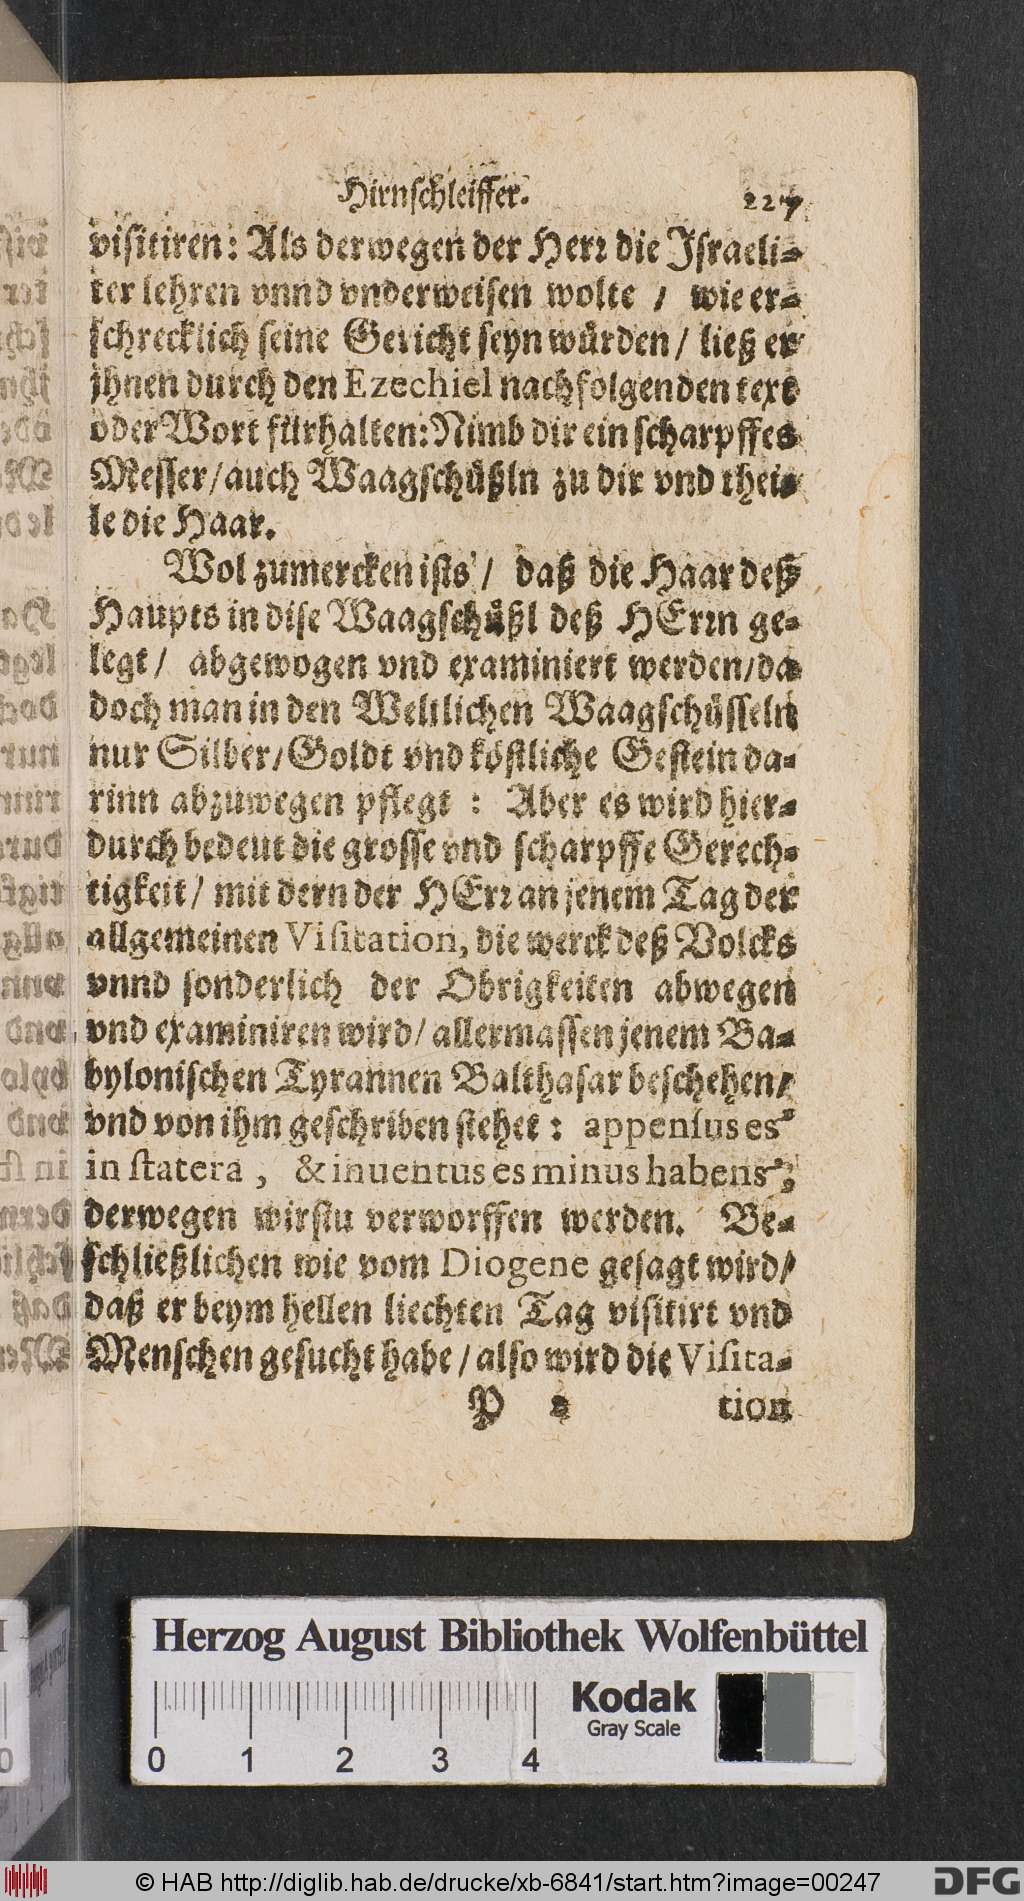 Hirnschleiffer. 227
visitiren: Als derwegen der Herr die Israeli-
ter lehren vnnd vnderweisen wolte / wie er-
schrecklich seine Gericht seyn wůrden / ließ er
jhnen durch den Ezechiel nachfolgenden text
oder Wort fürhalten: Nimb dir ein scharpffes
Messer / auch Waagschůßln zu dir vnd thei-
le die Haar.
Wol zumercken ists / daß die Haar deß
Haupts in dise Waagschůßl deß HErrn ge-
legt / abgewogen vnd examiniert werden / da
doch man in den Weltlichen Waagschüsseln
nur Silber / Goldt vnd köstliche Gestein da-
rinn abzuwegen pflegt : Aber es wird hier-
durch bedeut die grosse vnd scharpffe Gerech-
tigkeit / mit dern der HErr an jenem Tag der
allgemeinen Visitation, die werck deß Volcks
vnnd sonderlich der Obrigkeiten abwegen
vnd examiniren wird / allermassen jenem Ba-
bylonischen Tyrannen Balthasar beschehen /
vnd von ihm geschriben stehet : appensus es
in statera, & inuentus es minus habens,
derwegen wirstu verworffen werden. Be-
schließlichen wie vom Diogene gesagt wird /
daß er beym hellen liechten Tag visitirt vnd
Menschen gesucht habe / also wird die Visita-
P 2 tion
Herzog August Bibliothek Wolfenbüttel
Kodak
Gray Scale
0 1 2 3 4
© HAB http://diglib.hab.de/drucke/xb-6841/start.htm?image=00247
DFG